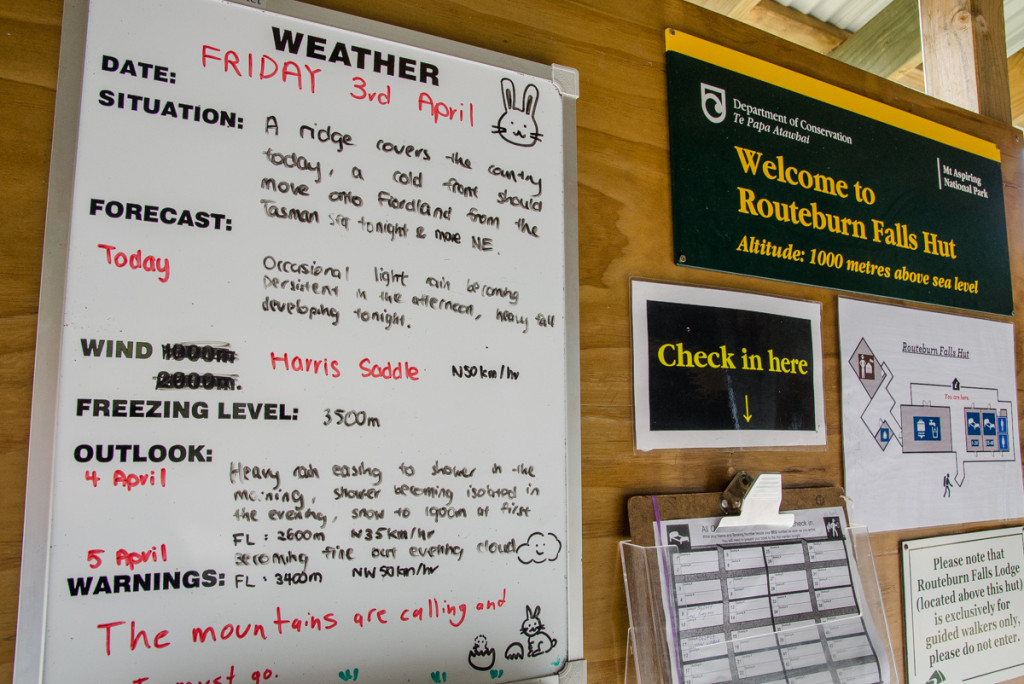 WEATHER
DATE: FRIDAY 3rd April
SITUATION: A ridge covers the country
today, a cold front should
move onto Fiordland from the
Tasman sea tonight & move NE.
FORECAST:
Today
Occasional light rain becoming
persistent in the afternoon, heavy fall
developing tonight.
WIND 1000m Harris Saddle N50km/hr
2000m.
FREEZING LEVEL: 3500m
OUTLOOK:
4 April Heavy rain easing to shower in the
morning, shower becoming isolated in
the evening, snow to 1900m at first
FL : 2600m N35km/hr
5 April Becoming fine but evening cloud
WARNINGS: FL : 3400m NW50km/hr
The mountains are calling and
I must go.
Department of Conservation
Te Papa Atawhai
Mt Aspiring
National Park
Welcome to
Routeburn Falls Hut
Altitude: 1000 metres above sea level
Check in here
Routeburn Falls Hut
You are here.
check in:
Please note that
Routeburn Falls Lodge
(located above this hut)
is exclusively for
guided walkers only,
please do not enter.